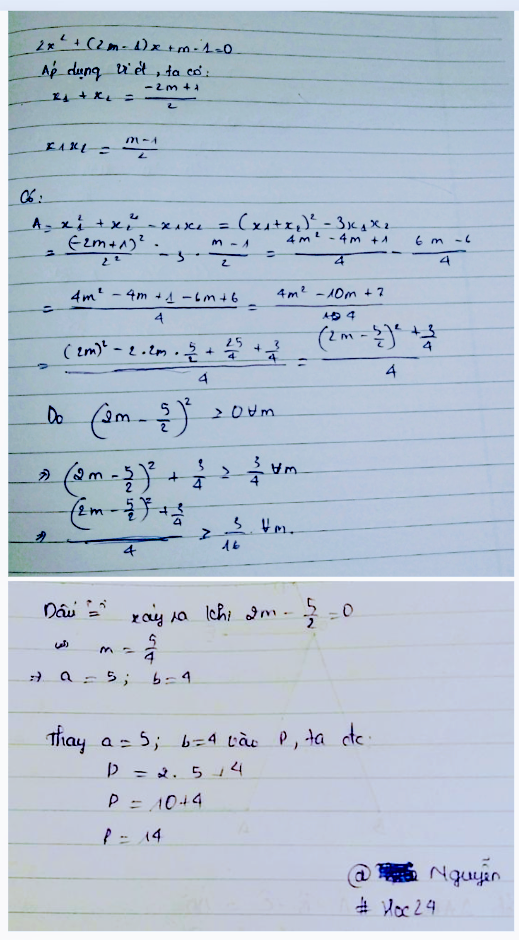 2x² + (2m-1)x + m-1=0
Áp dụng Viét, ta có:
x₁ + x₂ = (-2m+1)/2
x₁x₂ = (m-1)/2
Có:
A = x₁² + x₂² - x₁x₂ = (x₁+x₂)² - 3x₁x₂
= (-2m+1)²/2² - 3 · (m-1)/2 = (4m² - 4m + 1)/4 - (6m-6)/4
= (4m² - 4m + 1 - 6m + 6)/4 = (4m² - 10m + 7)/4
= ((2m)² - 2.2m.5/2 + 25/4 + 3/4)/4 = ((2m - 5/2)² + 3/4)/4
Do (2m - 5/2)² ≥ 0 ∀m
⇒ (2m - 5/2)² + 3/4 ≥ 3/4 ∀m
⇒ ((2m - 5/2)² + 3/4)/4 ≥ 3/16 ∀m.
Dấu "=" xảy ra khi 2m - 5/2 = 0
⇔ m = 5/4
⇒ a = 5; b=4
Thay a = 5; b=4 vào P, ta đc:
P = 2. 5 + 4
P = 10+4
P = 14
@ Nguyễn
# Hoc24